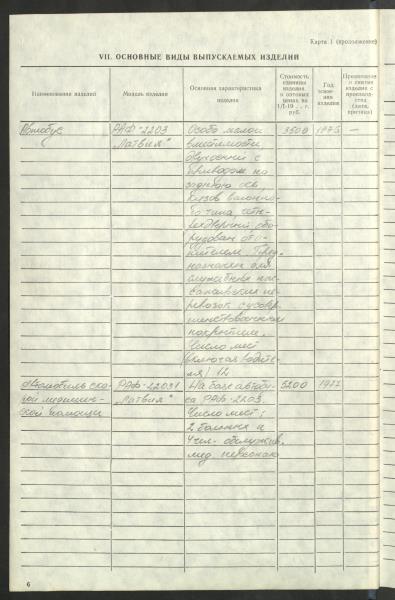 Карта 1 (продолжение)
VII. ОСНОВНЫЕ ВИДЫ ВЫПУСКАЕМЫХ ИЗДЕЛИЙ
Наименование изделий
Модель изделия
Основная характеристика
изделия
Стоимость
единицы
изделия
в оптовых
ценах на
1/I-19 . . г.
руб.
Год
освое-
ния
изделия
изделия с
производ-
ства
(дата,
причина)
Автобус
РАФ-2203
„Латвия"
Особо малой
вместимости
двухосный с
приводом на
заднюю ось
Кузов вагонно-
го типа, чет-
рудован ото-
пителем. Пред-
назначен для
служебных пас-
сажирских пе-
ревозок с усовер-
шенствованным
покрытием.
Число мест
(включая водите-
ля) 12
3500
1975
—
Автомобиль ско-
рой медицин-
ской помощи
РАФ-22031
„Латвия"
На базе автобу-
са РАФ-2203.
Число мест:
2 больных и
4 чел. обслужив.
мед. персонала
5200
1977
6